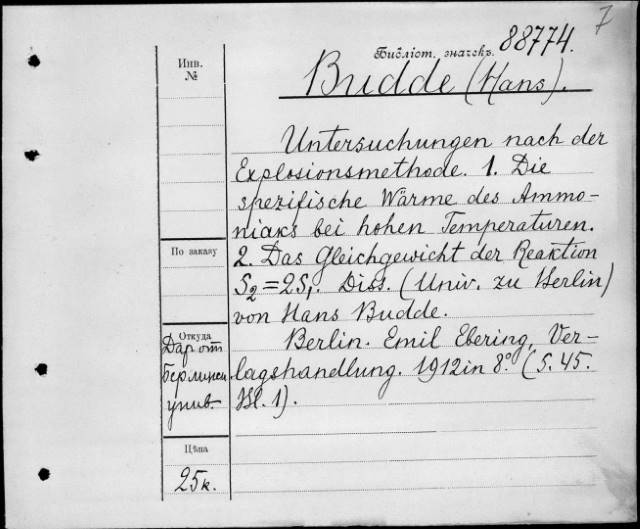 7
Библіот. значекъ. 88774.
Инв.
№
Budde (Hans).
Untersuchungen nach der
Explosionsmethode. 1. Die
spezifische Wärme des Ammo-
niaks bei hohen Temperaturen.
По заказу
2. Das Gleichgewicht der Reaktion
S₂=2S₁. Diss. (Univ. zu Berlin)
von Hans Budde.
Откуда
Дар от
берлинск
унив.
Berlin. Emil Ebering, Ver-
lagshandlung. 1912 in 8° (S. 45.
Bl. 1).
Цѣна
25к.